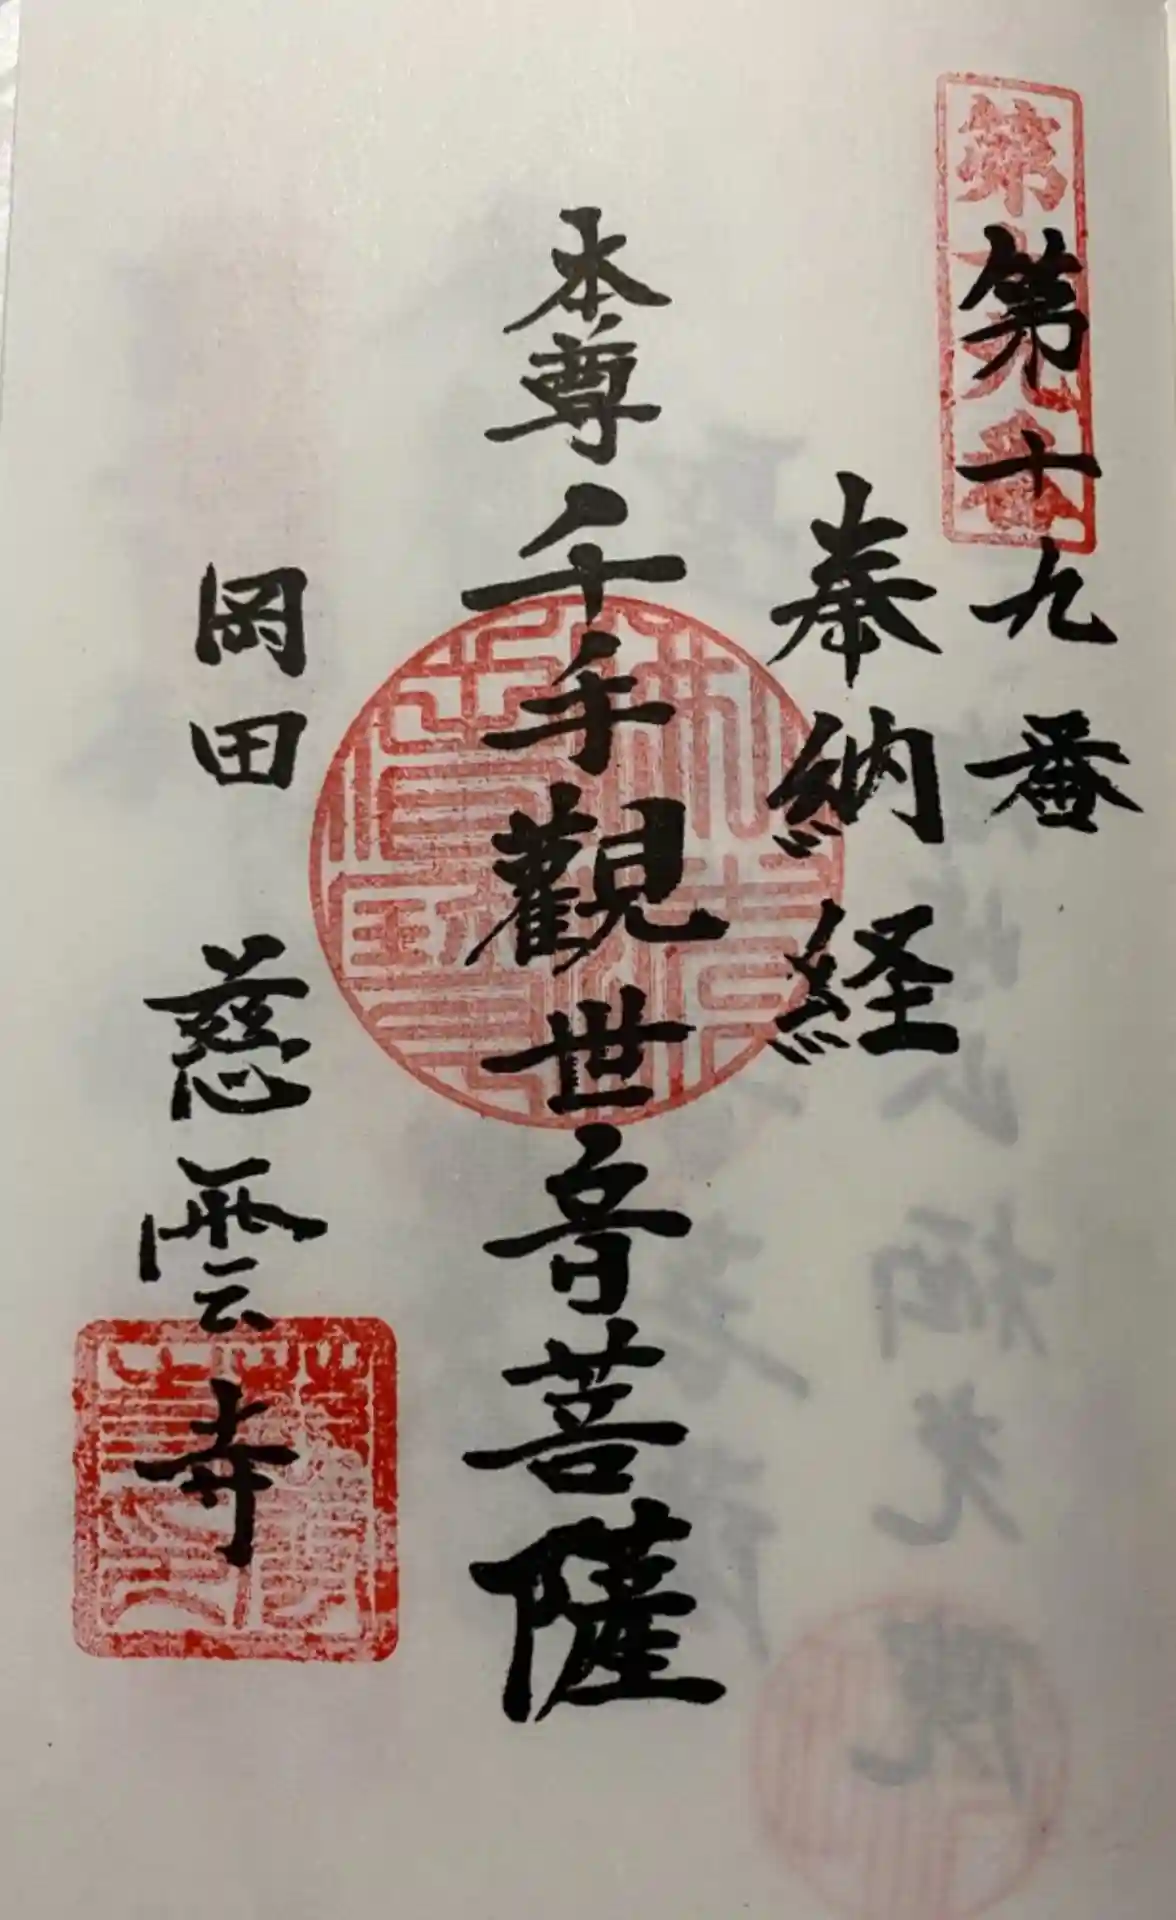 第十九番
第十九番
奉納経
本尊千手觀世音菩薩
岡田 慈雲寺